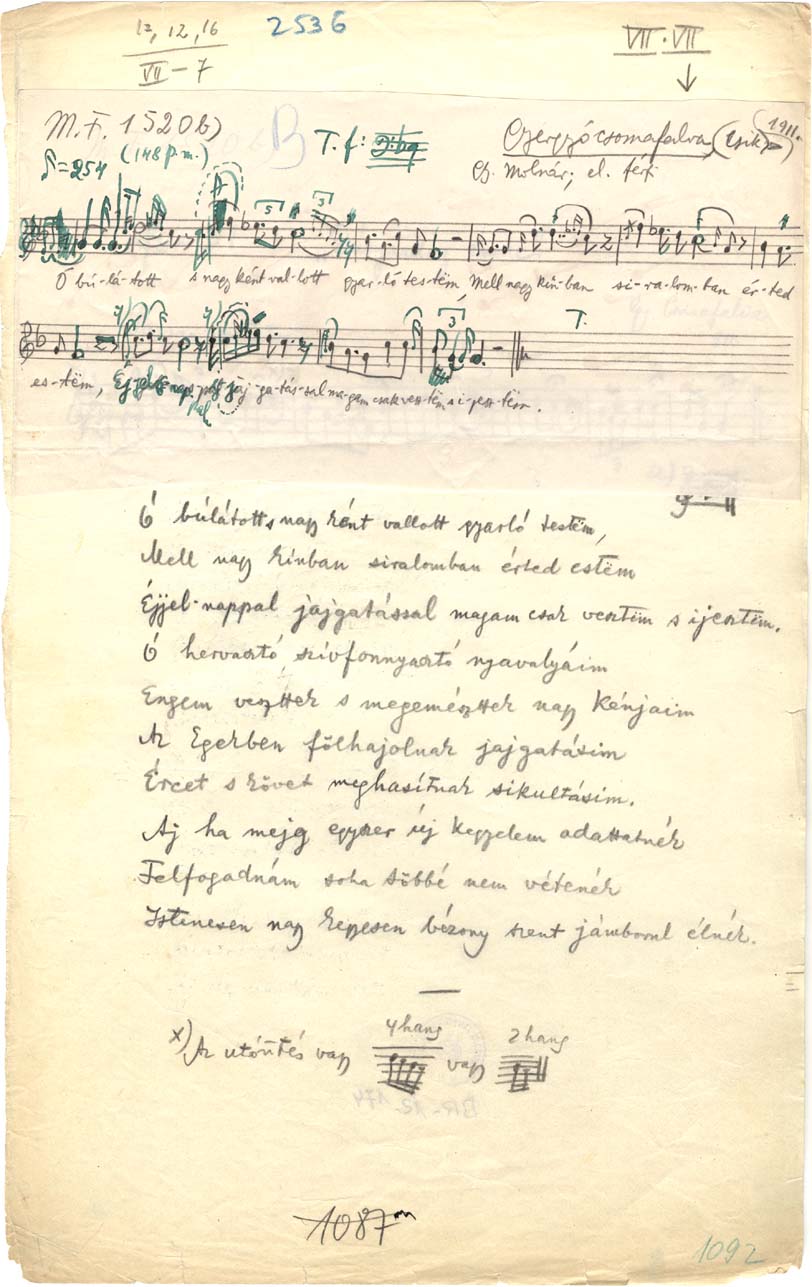 12, 12, 16
VII – 7
2536
VII · VII
M.F. 1520 b)
B
T. f:
Gyergyócsomafalva (Csík)
1911.
(148 p.m.)
= 254
Molnár; el. férfi
Ó bú-lá-tott s nagy ként val-lott gyar-ló tes-tëm, Mell nagy kín-ban si-ra-lom-ban ér-ted
T.
es-tëm, jaj-ga-tás-sal ma-gam csak vesz-tëm s i-jesz-tëm.
Ó búlátott s nagy ként vallott gyarló testëm,
Mell nagy kinban siralomban érted estëm
Éjjel-nappal jajgatással magam csak vesztëm s ijesztëm.
Ó hervasztó, szívfonnyasztó nyavalyáim
Engem vesztтek s megemésztтek nagy kénjaim
Az Egekben fölhajolnak jajgatásim
Ércet s követ meghasítnak sikultásim.
Aj ha mejg egyszer új kegyelem adattatnék
Felfogadnám soha többé nem vétenék
Istenesen nagy kegyesen bézony szent jámborul élnék.
x) Az utóütés vagy 4 hang vagy 2 hang
BR-12 174
1087
1092